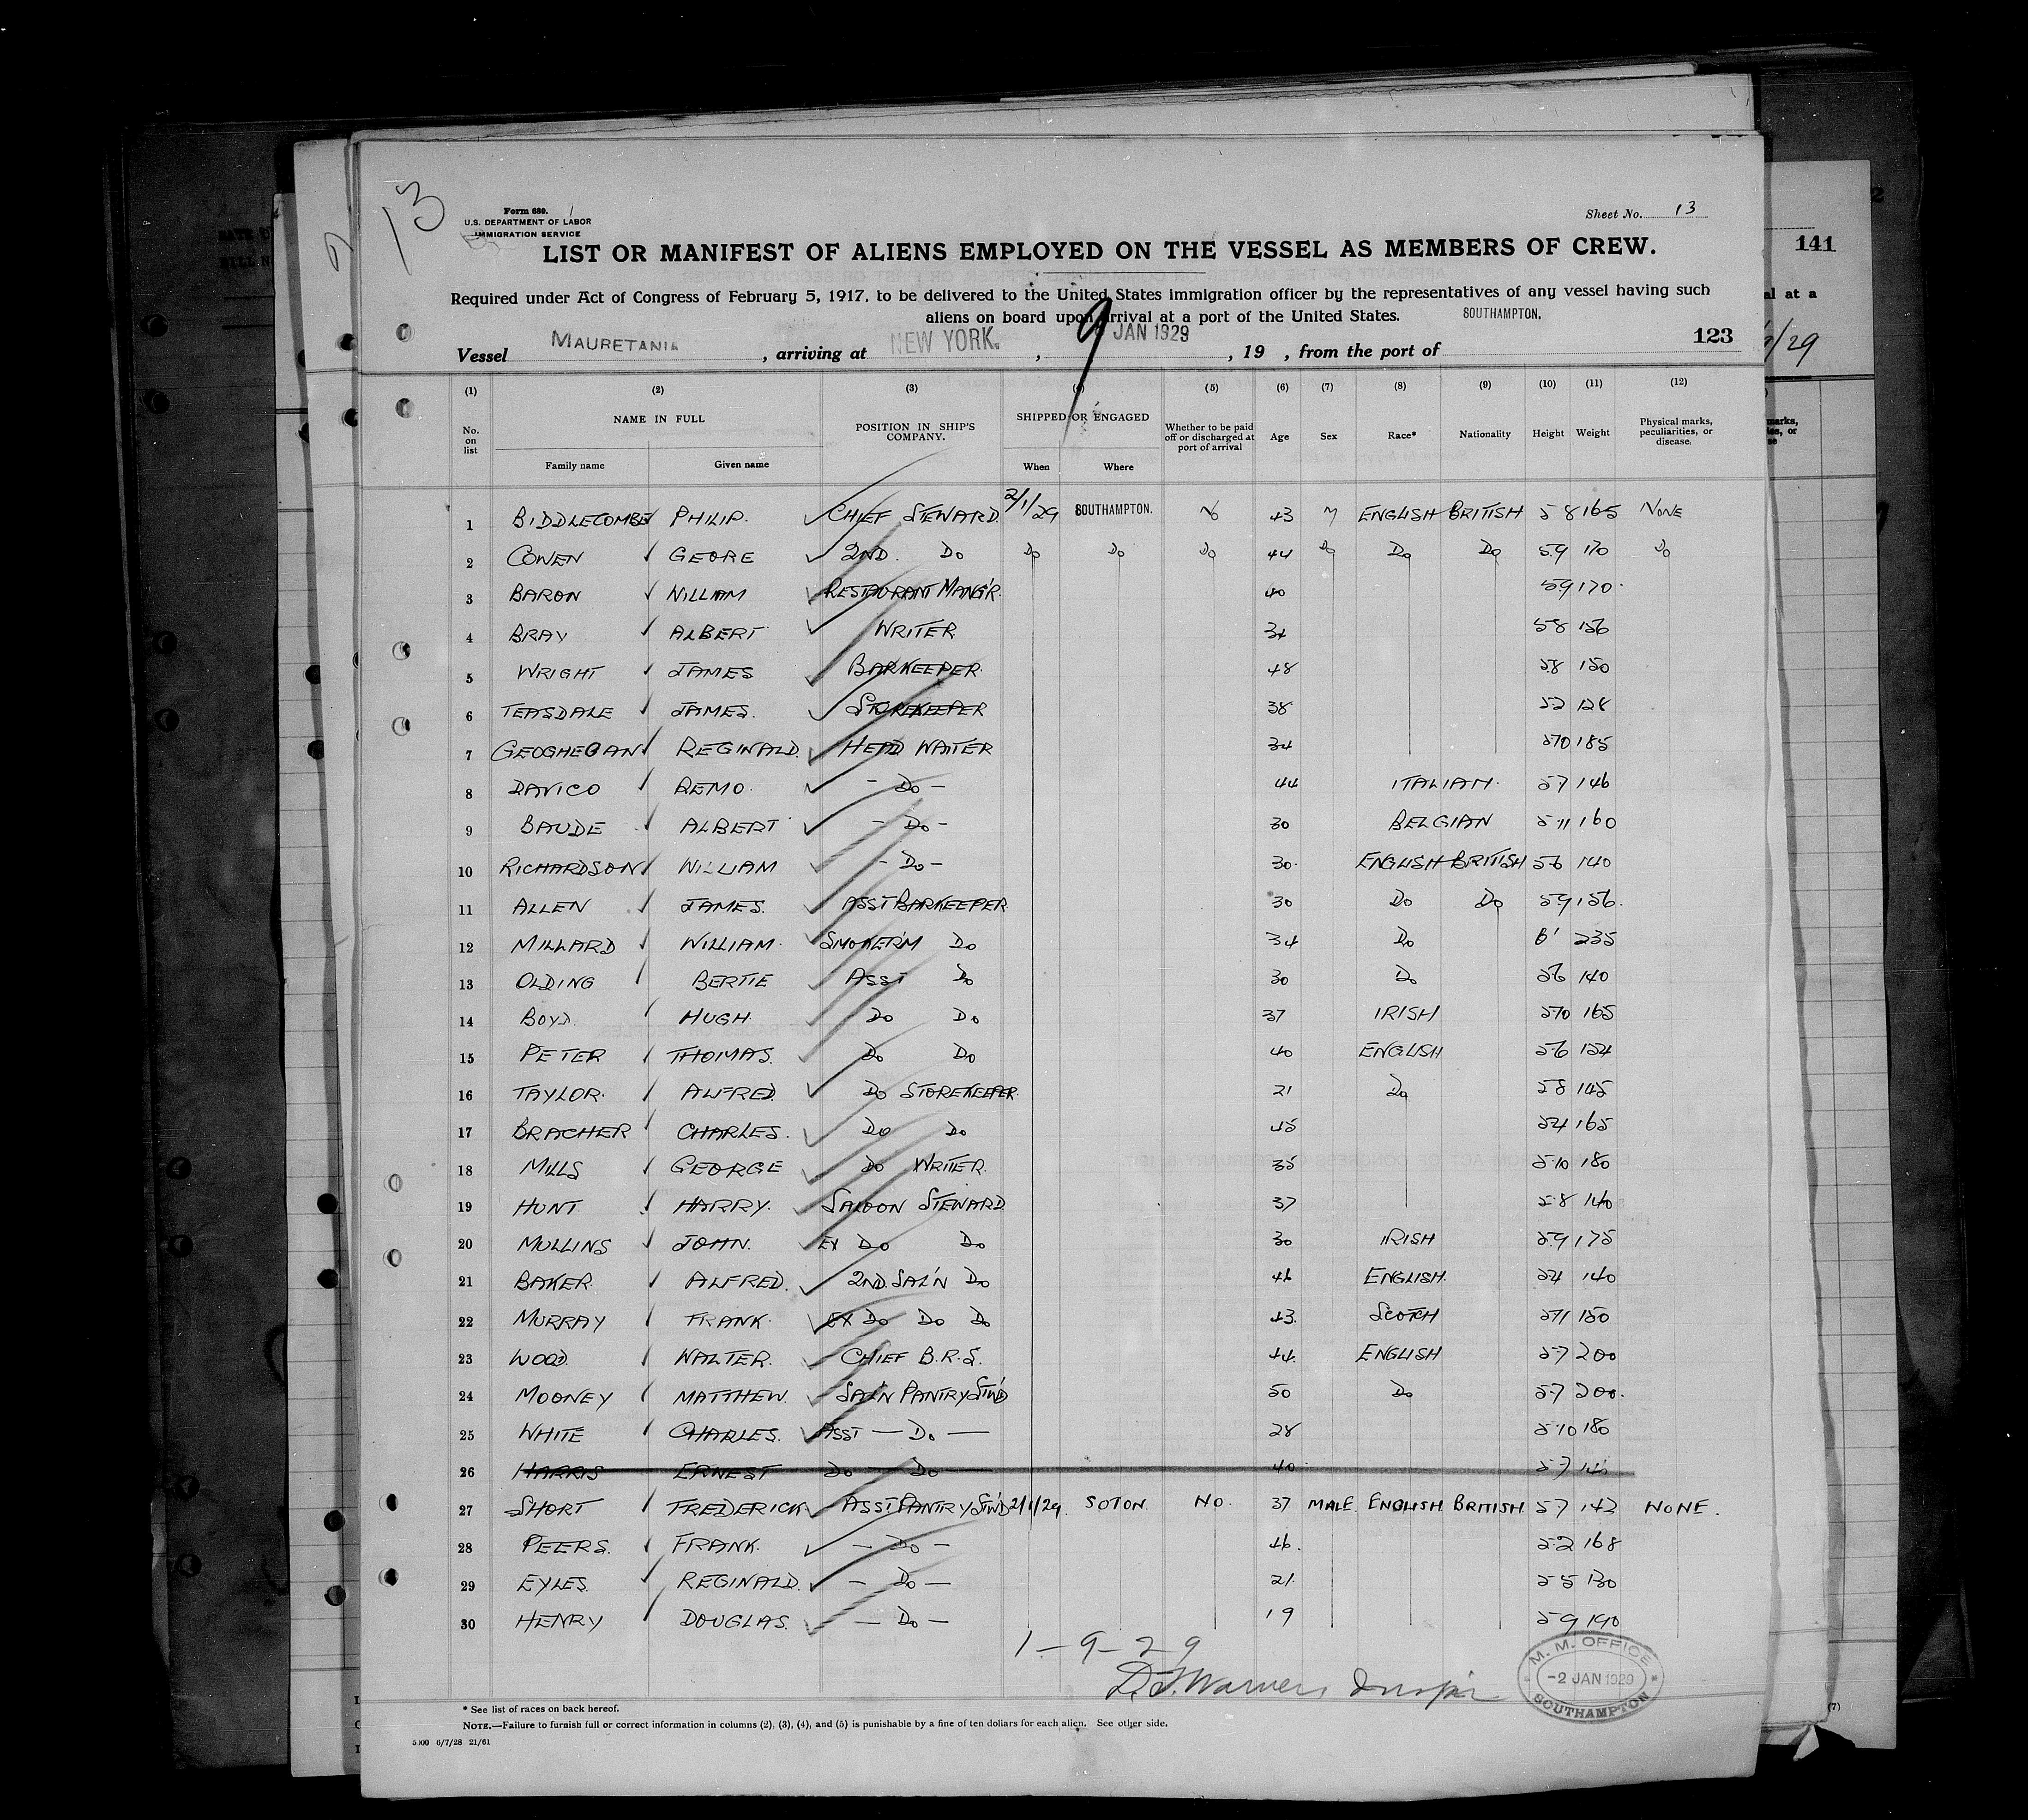 13
Form 680.
U.S. DEPARTMENT OF LABOR
IMMIGRATION SERVICE
Sheet No. 13
LIST OR MANIFEST OF ALIENS EMPLOYED ON THE VESSEL AS MEMBERS OF CREW.
141
Required under Act of Congress of February 5, 1917, to be delivered to the United States immigration officer by the representatives of any vessel having such
aliens on board upon arrival at a port of the United States.
SOUTHAMPTON.
123
Vessel MAURETANIA, arriving at NEW YORK., 9 JAN 1929, 19 , from the port of
/29
(1) (2) (3) (4) (5) (6) (7) (8) (9) (10) (11) (12)
No. on list NAME IN FULL POSITION IN SHIP'S COMPANY. SHIPPED OR ENGAGED Whether to be paid off or discharged at port of arrival Age Sex Race* Nationality Height Weight Physical marks, peculiarities, or disease.
Family name Given name When Where
1 BIDDLECOMBE PHILIP. CHIEF STEWARD 2/1/29 SOUTHAMPTON. 43 M ENGLISH BRITISH 58 165 NONE
2 COWEN GEORE 2ND. DO DO DO DO 44 DO DO DO 59 170 DO
3 BARON WILLIAM RESTAURANT MANG'R. 40 59 170.
4 BRAY ALBERT WRITER 34 58 156
5 WRIGHT JAMES BARKEEPER. 48 58 150
6 TEASDALE JAMES. STOREKEEPER 38 52 128
7 GEOGHEGAN REGINALD. HEAD WAITER 34 570 185
8 DAVICO REMO. - DO - 44 ITALIAN. 57 146
9 BAUDE ALBERT - DO - 30 BELGIAN 5 11 160
10 RICHARDSON WILLIAM - DO - 30. ENGLISH BRITISH 56 140
11 ALLEN JAMES. ASST BARKEEPER 30 DO DO 59 156.
12 MILLARD WILLIAM. SMOKER'M DO 34 DO 6' 235
13 OLDING BERTIE ASST DO 30 DO 56 140
14 BOYD. HUGH. DO DO 37 IRISH 570 165
15 PETER THOMAS. DO DO 40 ENGLISH 56 154
16 TAYLOR. ALFRED. DO STOREKEEPER. 21 DO 58 145
17 BRACHER CHARLES. DO DO 45 54 165
18 MILLS GEORGE DO WRITER. 35 5.10 180
19 HUNT HARRY. SALOON STEWARD 37 5.8 140
20 MULLINS JOHN. EX DO DO 30 IRISH 59 175
21 BAKER. ALFRED. 2ND. SAL'N DO 46 ENGLISH. 54 140
22 MURRAY FRANK. EX DO DO DO 43. SCOTCH 511 150
23 WOOD. WALTER. CHIEF B.R.S. 44. ENGLISH 57 200
24 MOONEY MATTHEW. SAL'N PANTRY STW'D 50 DO 57 200.
25 WHITE CHARLES. ASST — DO — 28 5.10 180
26 HARRIS ERNEST DO DO 40. 57
27 SHORT FREDERICK ASST PANTRY STW'D 2/1/29. SOTON. NO. 37 MALE. ENGLISH. BRITISH. 57 143 NONE.
28 PEERS. FRANK. — DO — 46. 5.2 168
29 EYLES. REGINALD. — DO — 21. 55 130
30 HENRY DOUGLAS. — DO — 19 59 190
1-9-29
M. M. OFFICE
-2 JAN 1929
SOUTHAMPTON
* See list of races on back hereof.
NOTE.—Failure to furnish full or correct information in columns (2), (3), (4), and (5) is punishable by a fine of ten dollars for each alien. See other side.
(7)
5000 6/7/28 21/61